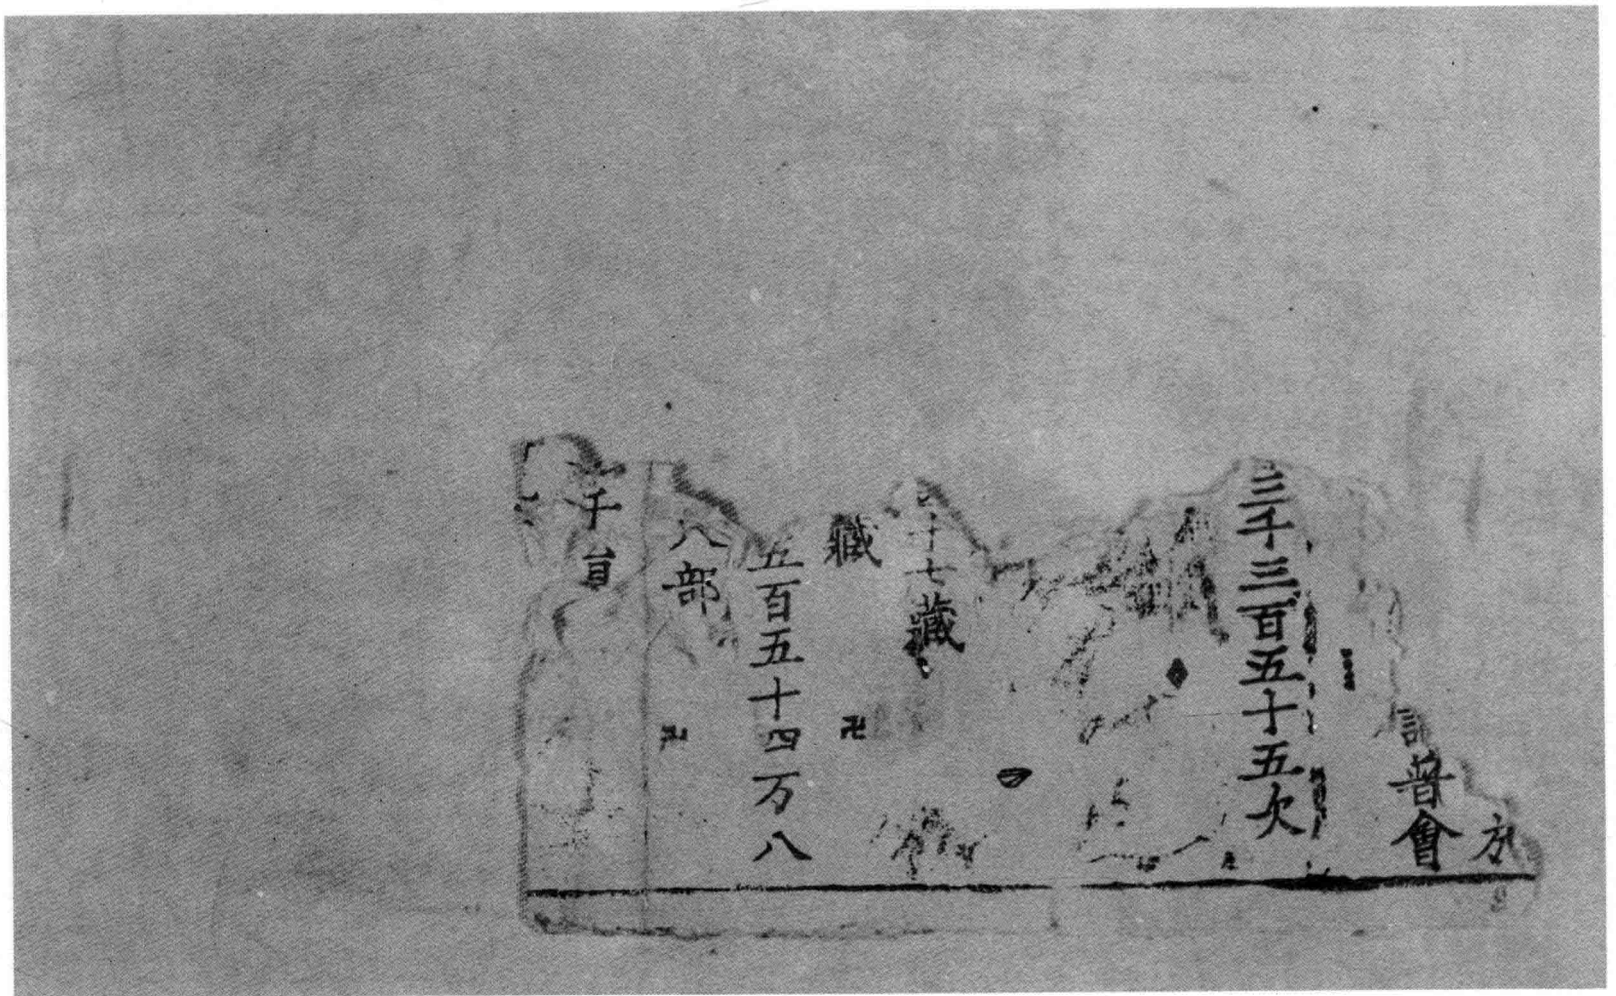 方
普會
三千三百五十五欠
十七藏
藏
卍
五百五十四万八
八部
卍
千百